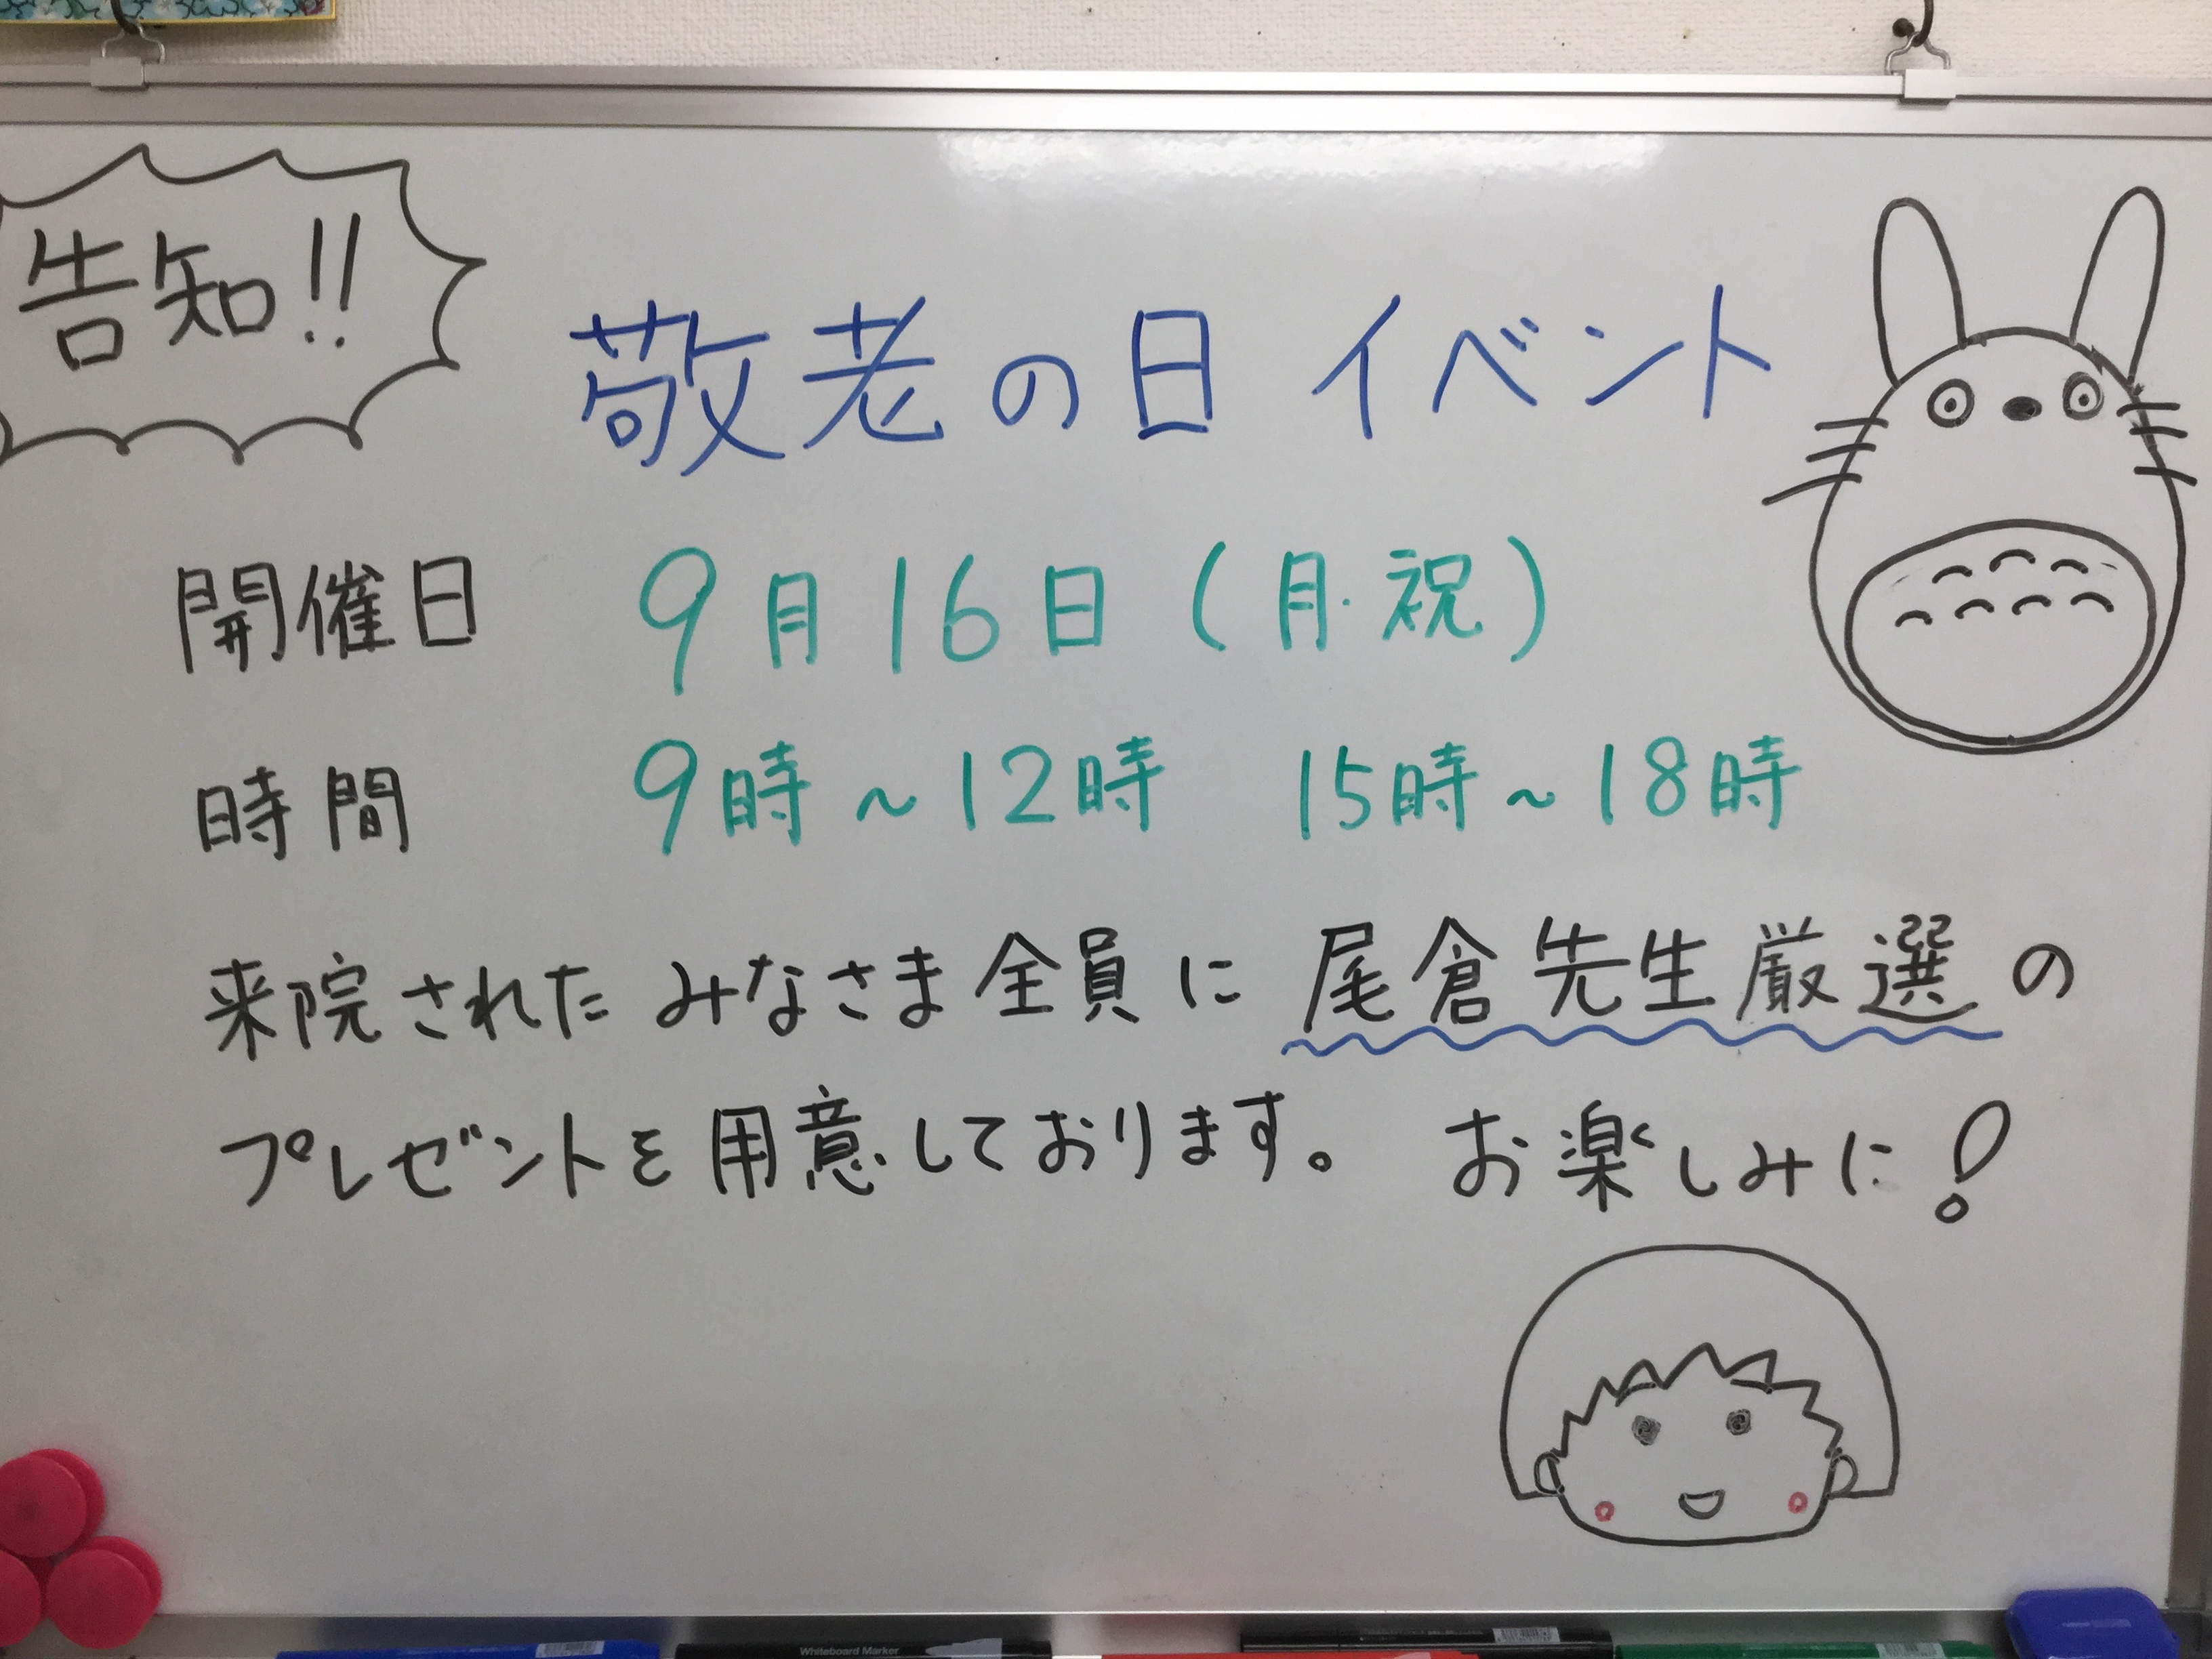 告知!!
敬老の日 イベント
開催日 9月16日(月・祝)
時間 9時~12時 15時~18時
来院された みなさま全員に 尾倉先生厳選の
プレゼントを用意しております。 お楽しみに!
Whiteboard Marker